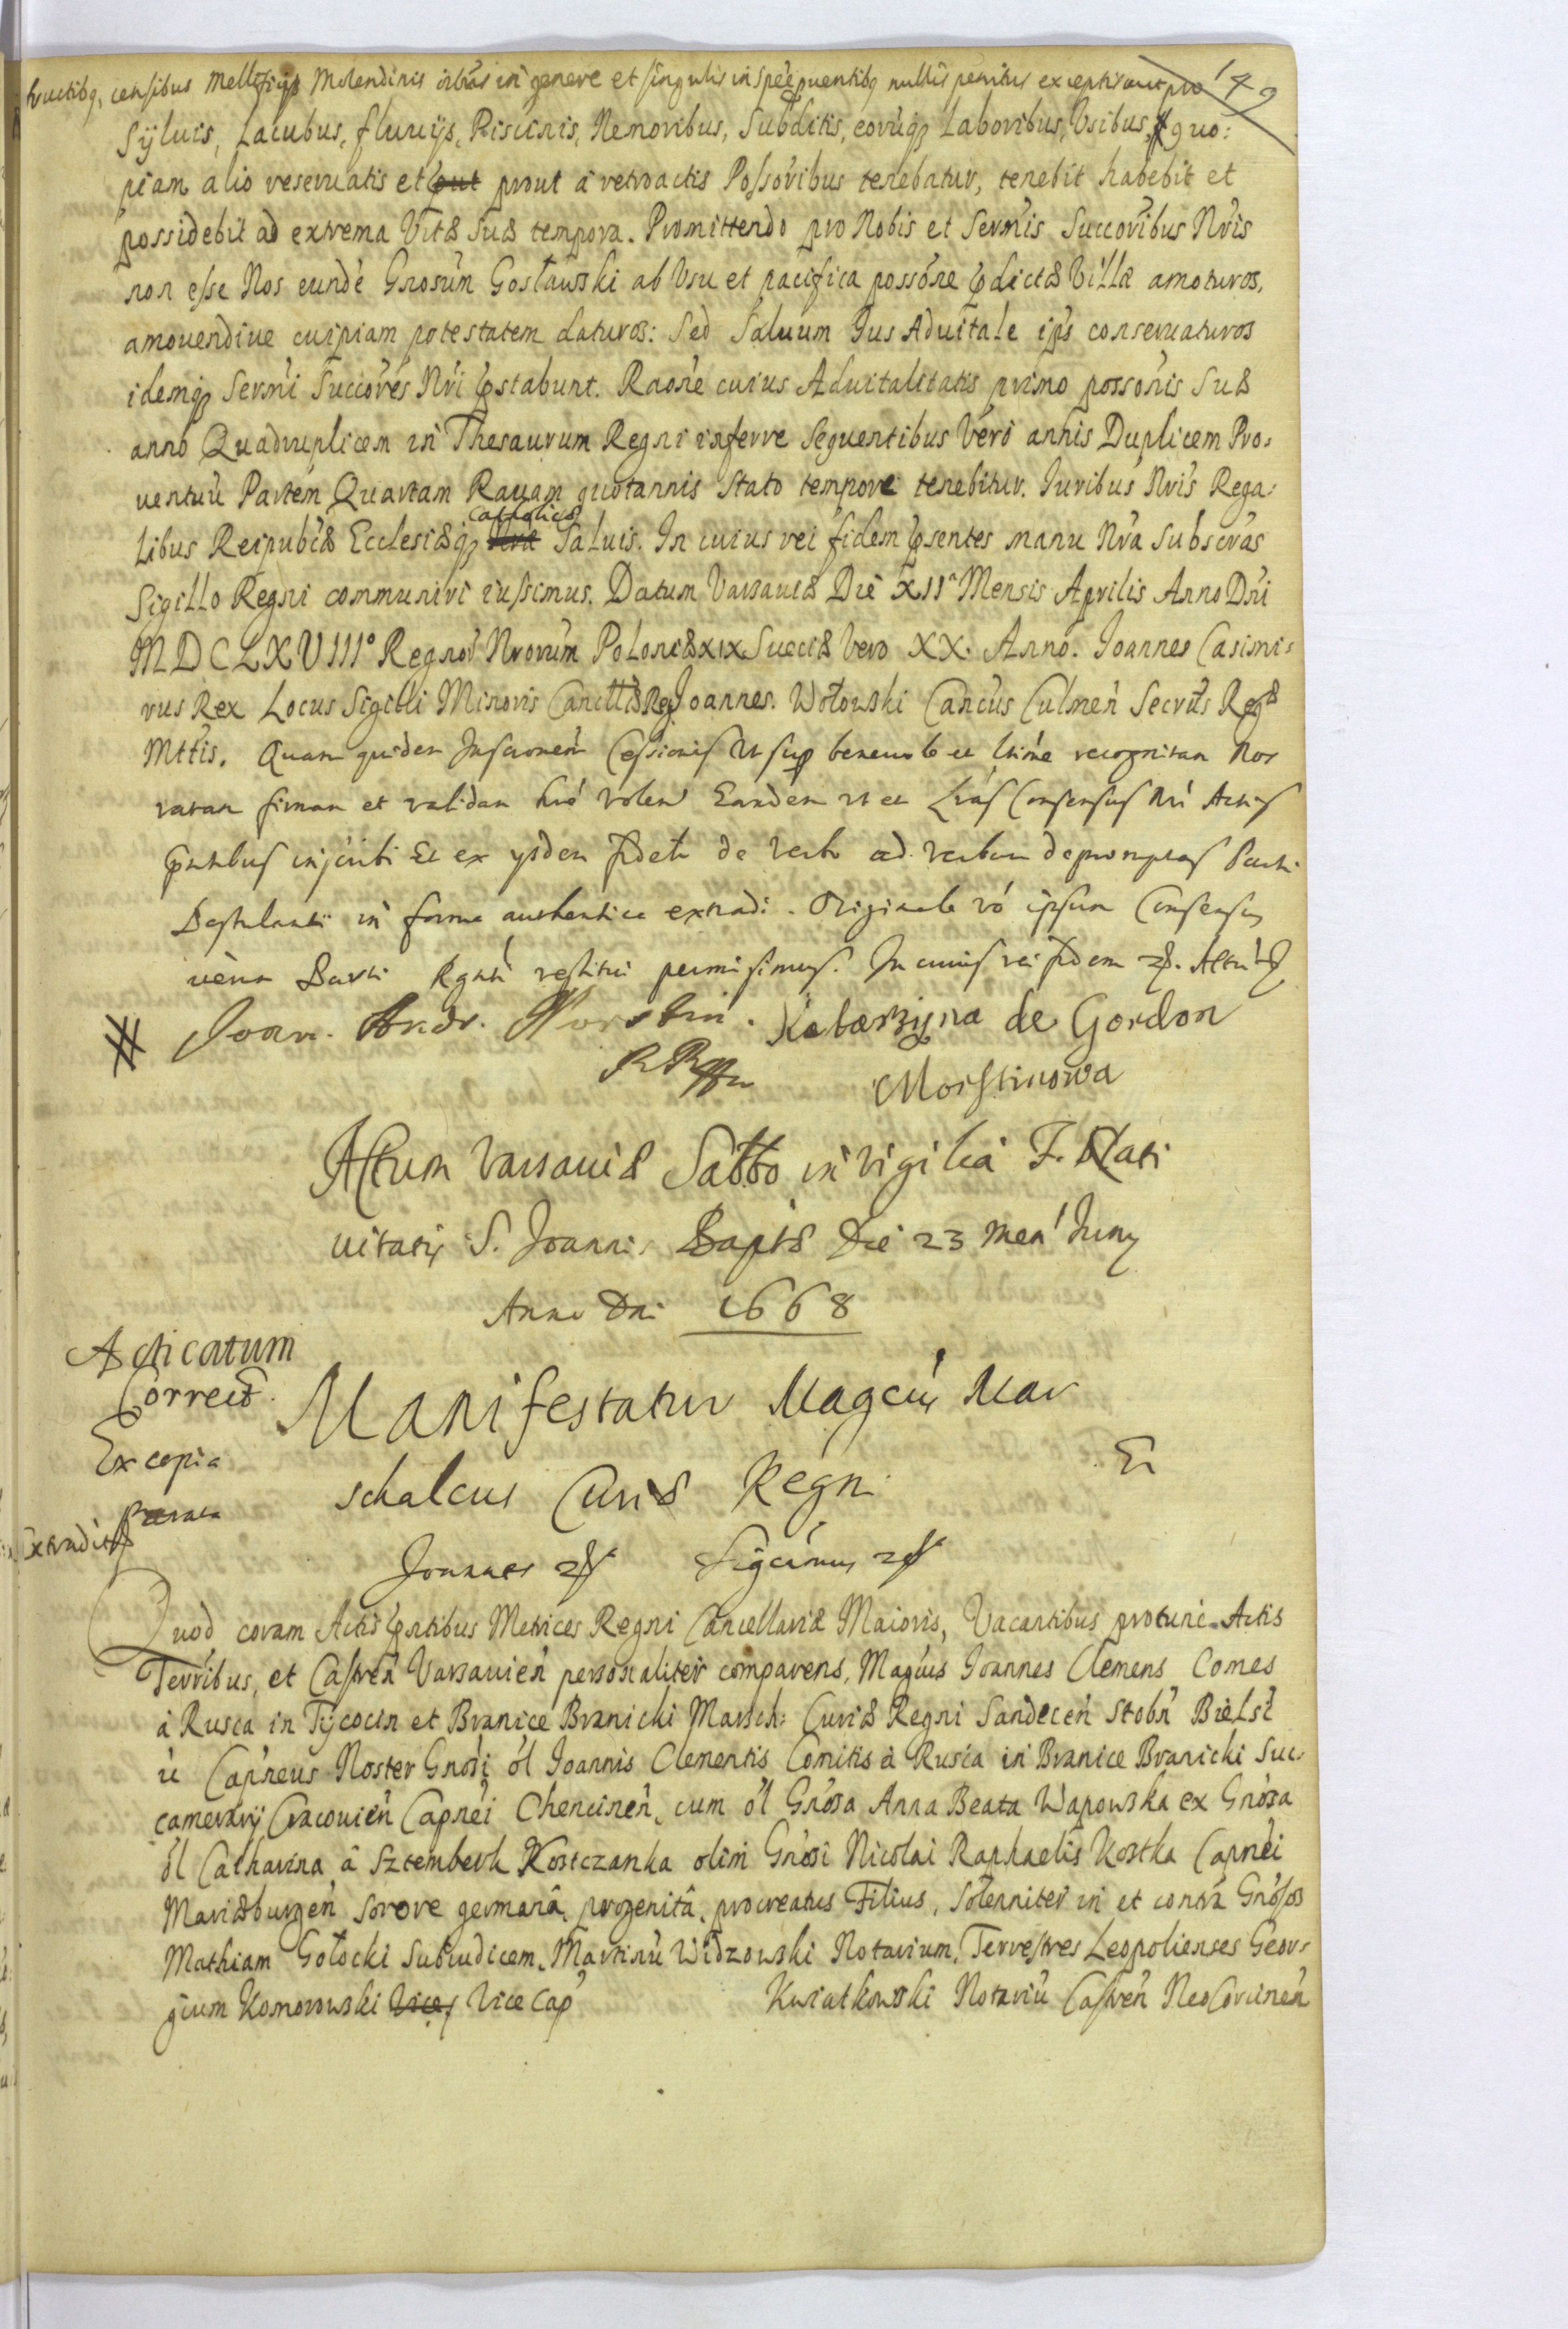 149
fructibq, censibus Mellificijs Molendinis oibus in genere et singulis in spē quentibq nullis penitus exceptis aut pro
Syluis, Lacubus, fluuijs, Piscinis, Nemoribus, Subditis, eorūqȝ Laboribus, Vsibus, quo:
piam alio reseruatis et prout à retroactis Possoribus tenebatur, tenebit habebit et
possidebit ad extrema Vitæ Suæ tempora. Promittendo pro Nobis et Sermis Succoribus Nris
non esse Nos eundē Gnosum Gosławski ab Vsu et pacifica possone pdictæ Villæ amoturos,
amouendiue cuipiam potestatem daturos: Sed Saluum Jus Aduitale ips conseruaturos
idemqȝ Sermi Succores Nri pstabunt. Raone cuius Aduitalitatis primo possonis Suæ
anno Quadruplicem in Thesaurum Regni inferre Sequentibus Vero annis Duplicem Pro:
uentuū Partem Quartam Rauam quotannis stato tempore tenebitur. Juribus Nris Rega:
Catholicæ
libus Reipubcæ Ecclesiæqȝ Saluis. In cuius rei fidem psentes manu Nra Subscras
Sigillo Regni communiri iussimus. Datum Varsauiæ Die XIIa Mensis Aprilis Anno Dni
MDCLXVIIIo Regnor Nrorum Poloniæ XIX Sueciæ Vero XX. Anno. Joannes Casimi:
rus Rex Locus Sigilli Minoris Cancllæ Reg Joannes. Wołowski Cancus Culmen Secrets Regæ
Mttis. Quam quidem Inscronem Cessionis Vt sup beneuole et ltime recognitam Nos
ratam firmam et validam hrē volen Eandem vt et Lras Consensus Nri Actis
pntibus inscribi Et ex ijsdem fidetr de verbo ad verbum depromptas Parti
Postulanti in forma authentica extradi. Originale vō ipsum Consensus
Parti Rgnti restitui permisimus. In cuius rei fidem &. Actu &
Joan. Andr. Morstin. Katarzyna de Gordon
Morstinowa
Actum Varsauiæ Sabbo in Vigilia F. Nati
uitatis S. Joannis Baptæ Die 23 Men Juny
Anno Dni 1668
Acticatum
Correct.
Ex copia
Extradit
Manifestatur Magcus Mar
schalcus Curiæ Regni Et
Joannes & Sigcimus &
Quod coram Actis pntibus Metrices Regni Cancellariæ Maioris, Vacantibus protunc Actis
Terribus, et Castren Varsauien personaliter comparens, Magcus Joannes Clemens Comes
à Rusca in Tycocin et Branice Branicki Marsch: Curiæ Regni Sandecen Stobn Bielsc
Capneus Noster Gnosi ol Joannis Clementis Comitis à Rusca in Branice Branicki Suc:
camerarij Cracouien Capnei Chencinen, cum ol Gnosa Anna Beata Wapowska ex Gnosa
ol Catharina â Sztemberk Kostczanka olim Gnosi Nicolai Raphaelis Kostka Capnei
Mariæburgen Sorore germanâ, progenitâ, procreatus Filius, Solenniter in et contra Gnosos
Mathiam Gołocki Subiudicem, Martinū Widzowski Notarium, Terrestres Leopolienses Geor:
gium Komorowski Vices Vice Cap Kwiatkowski Notariū Castren NeoCorcinen